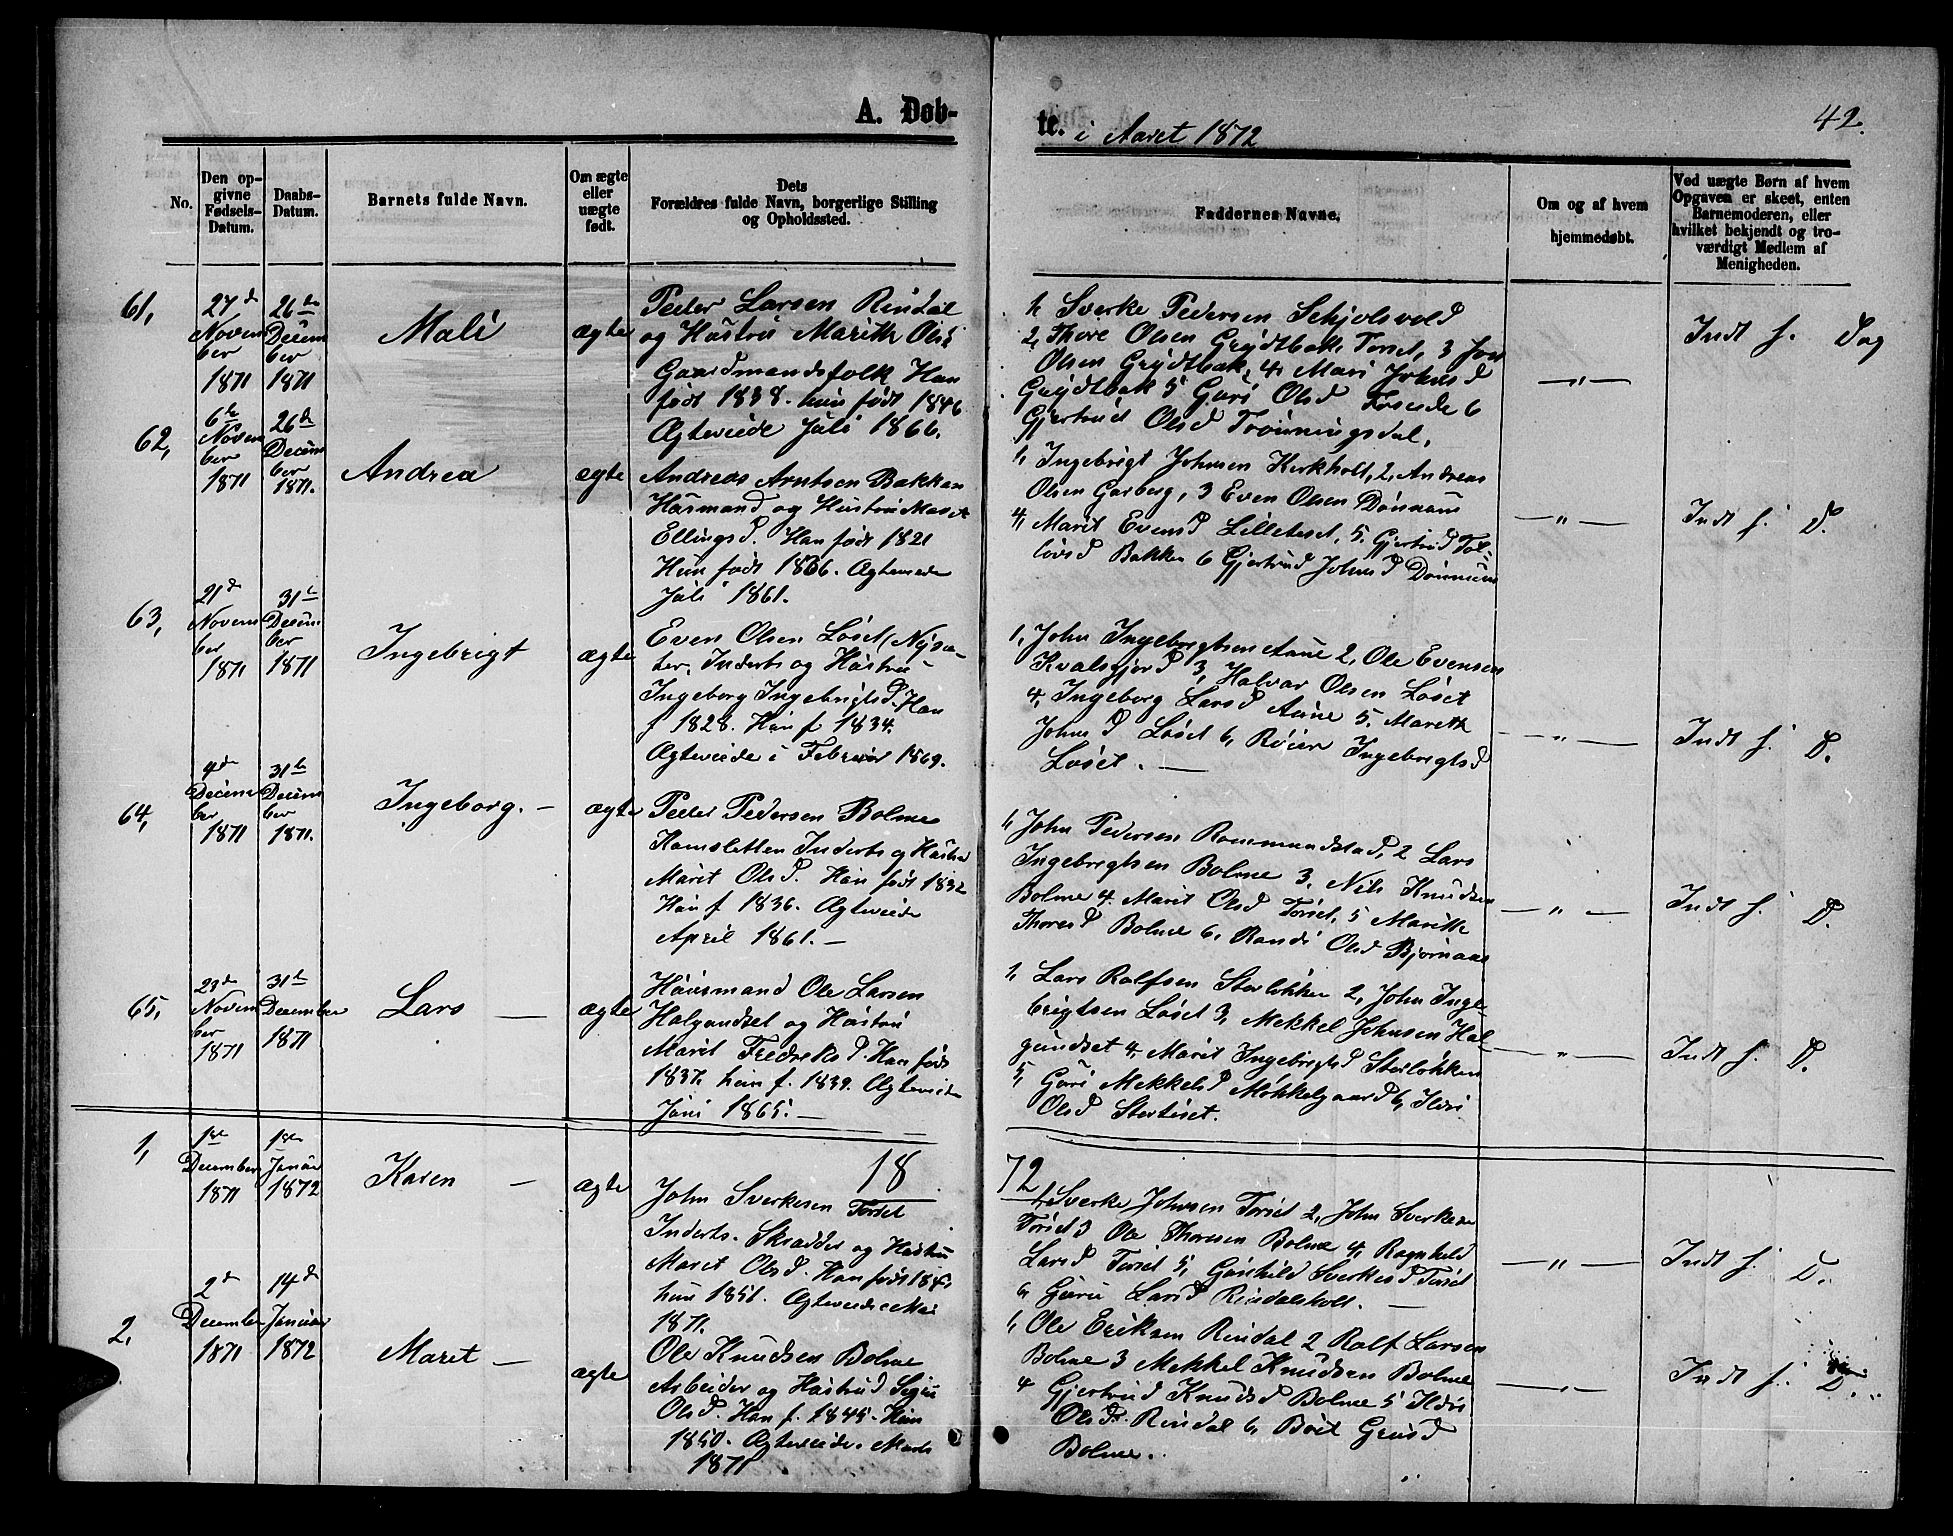 A. Døb-
te. i Aaret 1872
42.
No.
Den op-
givne
Fødsels-
Datum.
Daabs-
Datum.
Barnets fulde Navn.
Om ægte
eller
uægte
født.
Dets
Forældres fulde Navn, borgerlige Stilling
og Opholdssted.
Faddernes Navne.
Om og af hvem
hjemmedøbt.
Ved uægte Børn af hvem
Opgaven er skeet, enten
Barnemoderen, eller
hvilket bekjendt og tro-
værdigt Medlem af
Menigheden.
61,
27d
Novem
ber
1871
26de
Decem
ber
1871
Mali
ægte
Peder Larsen Rindal
og Hustru Marith Olsd
Gaardmandsfolk Han
født 1838. hun født 1846
Ægteviede Juli 1866.
1, Sverke Pedersen Schjolsvold
2, Thore Olsen Grÿdtbak Toriset, 3 Jon
Olsen Grÿdtbak, 4, Mari Johnsd
Grÿdtbak 5 Guri Olsd Foseide 6
Gjertrud Olsd Trønningsdal,
—„—
Indt f. Dag
62,
6te
Novem
ber
1871
26de
Decem
ber
1871.
Andrea
ægte
Andreas Arntsen Bakken
Husmand og Hustru Maret
Ellingsd. Han født 1821
Hun født 1836. Ægteviede
Juli 1861.
1, Ingebrigt Johnsen Kirkholt, 2, Andreas
Olsen Garberg, 3 Even Olsen Dønnum
4, Marit Evensd Lilleteset, 5. Gjertrud Tol-
lövsd Bakken 6 Gjertrud Johnsd Dønnum
—„—
Indt f. D.
63,
21d
Novem
ber
1871
31te
Decem
ber
1871
Ingebrigt
ægte
Even Olsen Løset (Nÿsæ-
ter, Inderts og Hustru
Ingeborg Ingebrigtsd. Han
f 1828. Hun f. 1834.
Ægteviede i Februar 1869.
1, John Ingebrigtsen Aune 2, Ole Evensen
Kvalsgjerd 3, Halvar Olsen Løset
4, Ingeborg Larsd Aune 5. Marith
Johnsd Løset 6, Røier Ingebrigtsd
Løset. —
—„—
Indt f. D.
64,
9de
Decem
ber
1871
31te
Decem
ber
1871.
Ingeborg. —
ægte
Peder Pedersen Bolme
Hamsletten Inderts og Hustru
Marit Olsd. Han født 1832
Hun f 1836. Ægteviede
April 1861. —
1, John Pedersen Rommundstad, 2 Lars
Ingebrigtsen Bolme 3, Nils Knudsen
Bolme 4. Marit Olsd Toriset, 5 Marith
Thoresd Bolme 6, Randi Olsd Bjørnaas
—„—
Indt f. D.
65,
23de
Novem
ber
1871
31te
December
1871
Lars —
ægte
Huusmand Ole Larsen
Halgundset og Hustru
Marit Fredriksd. Han født
1837. hun f. 1839. Ægteviede
Juni 1865. —
1, Lars Rolfsen Storløkken 2, John Inge-
brigtsen Løset 3, Mekkel Johnsen Hal-
gundset 4, Marit Ingebrigtsd Storløkken
5, Guri Mekkelsd Møkkelgaard 6, Ildri
Olsd Storteset.
—„—
Indt f. D.
1872
1,
1ste
December
1871
1ste
Januar
1872
Karen —
ægte
John Sverkesen Toriset
Inderts. Skrædder og Hustru
Marit Olsd. Han født
hun 1851. Ægteviede Mai
1871.
1, Sverke Johnsen Toriset 2, John Sverkesen
Toriset 3 Ole Thoresen Bolme 4, Ragnhild
Larsd Toriset 5, Gunhild Sverkesd Toriset
6, Guru Larsd Rindalsholt. —
—„—
Indt f. D.
2.
2d
December
1871
14d
Januar
1872
Maret —
ægte
Ole Knudsen Bolme
Arbeider og Hustru Segru
Olsd. Han f. 1845. Hun
1850. Ægteviede. Marts
1871
1, Ole Eriksen Rindal 2 Rolf Larsen
Bolme 3 Mekkel Knudsen Bolme
4 Gjertrud Knudsd Bolme 5 Ildri
Olsd. Rindal 6, Børit Gruesd
Bolme.
—„—
Indt f. D.